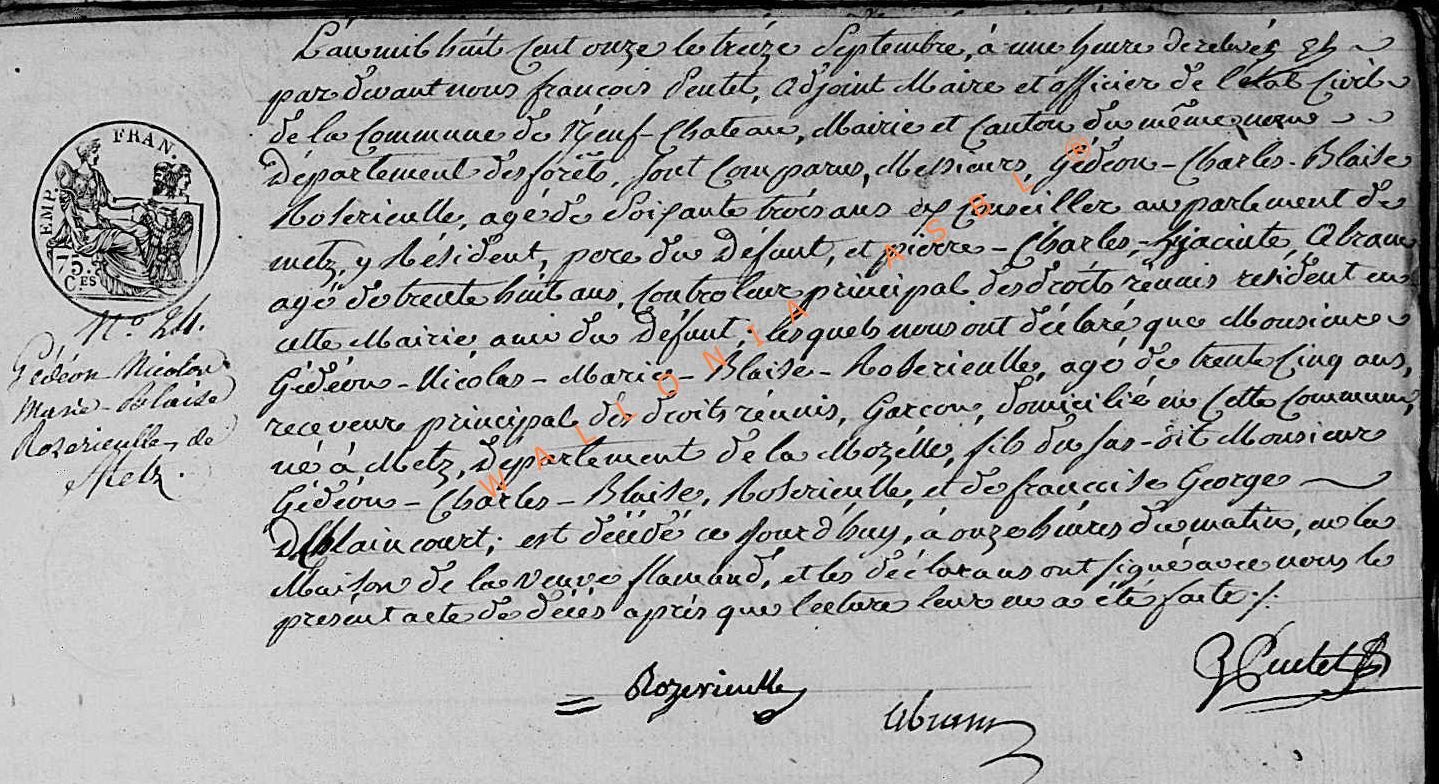 L'an mil huit Cent onze le treize Septembre, à une heure de relevée
par devant nous françois Pentet, adjoint Maire et officier de l'état Civil
de la Commune de Neuf-Chateau, Mairie et Canton du même nom
Département des forêts, sont Comparus, Messieurs, Gédéon-Charles-Blaise
Roserieulle, agé de Soixante trois ans ex Conseiller au parlement de
metz, y Résident, pere du Défunt, et pierre-Charles-hyacinte, Abram
agé de trente huit ans, Controleur principal des droits réunis résident en
cette Mairie ami du Défunt; lesquels nous ont déclaré que Monsieur
Gédéon-Nicolas-Marie-Blaise-Roserieulle, agé de trente Cinq ans,
receveur principal des droits réunis, Garçon, domicilié en Cette Commune,
né à Metz, département de la Mozelle, fils du sus-dit Monsieur
Gédéon-Charles-Blaise, Roserieulle, et de françoise George
D'Alaincourt; est décédé ce jourd'huy, à onze heures du matin, en la
Maison de la veuve flamand, et les déclarans ont signé avec nous le
présent acte de décès après que lecture leur en a été faite ./.
EMP. FRAN.
75.
CES
N.º 24.
Gédéon-Nicolas
Marie-Blaise
Rozerieulle, de
Metz.
Rozerieulle
Abram
WALLONIA ASBL ®